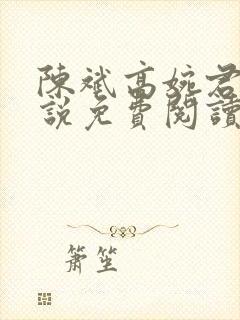 陳斌高婉君
說免費閱讀
簫笙